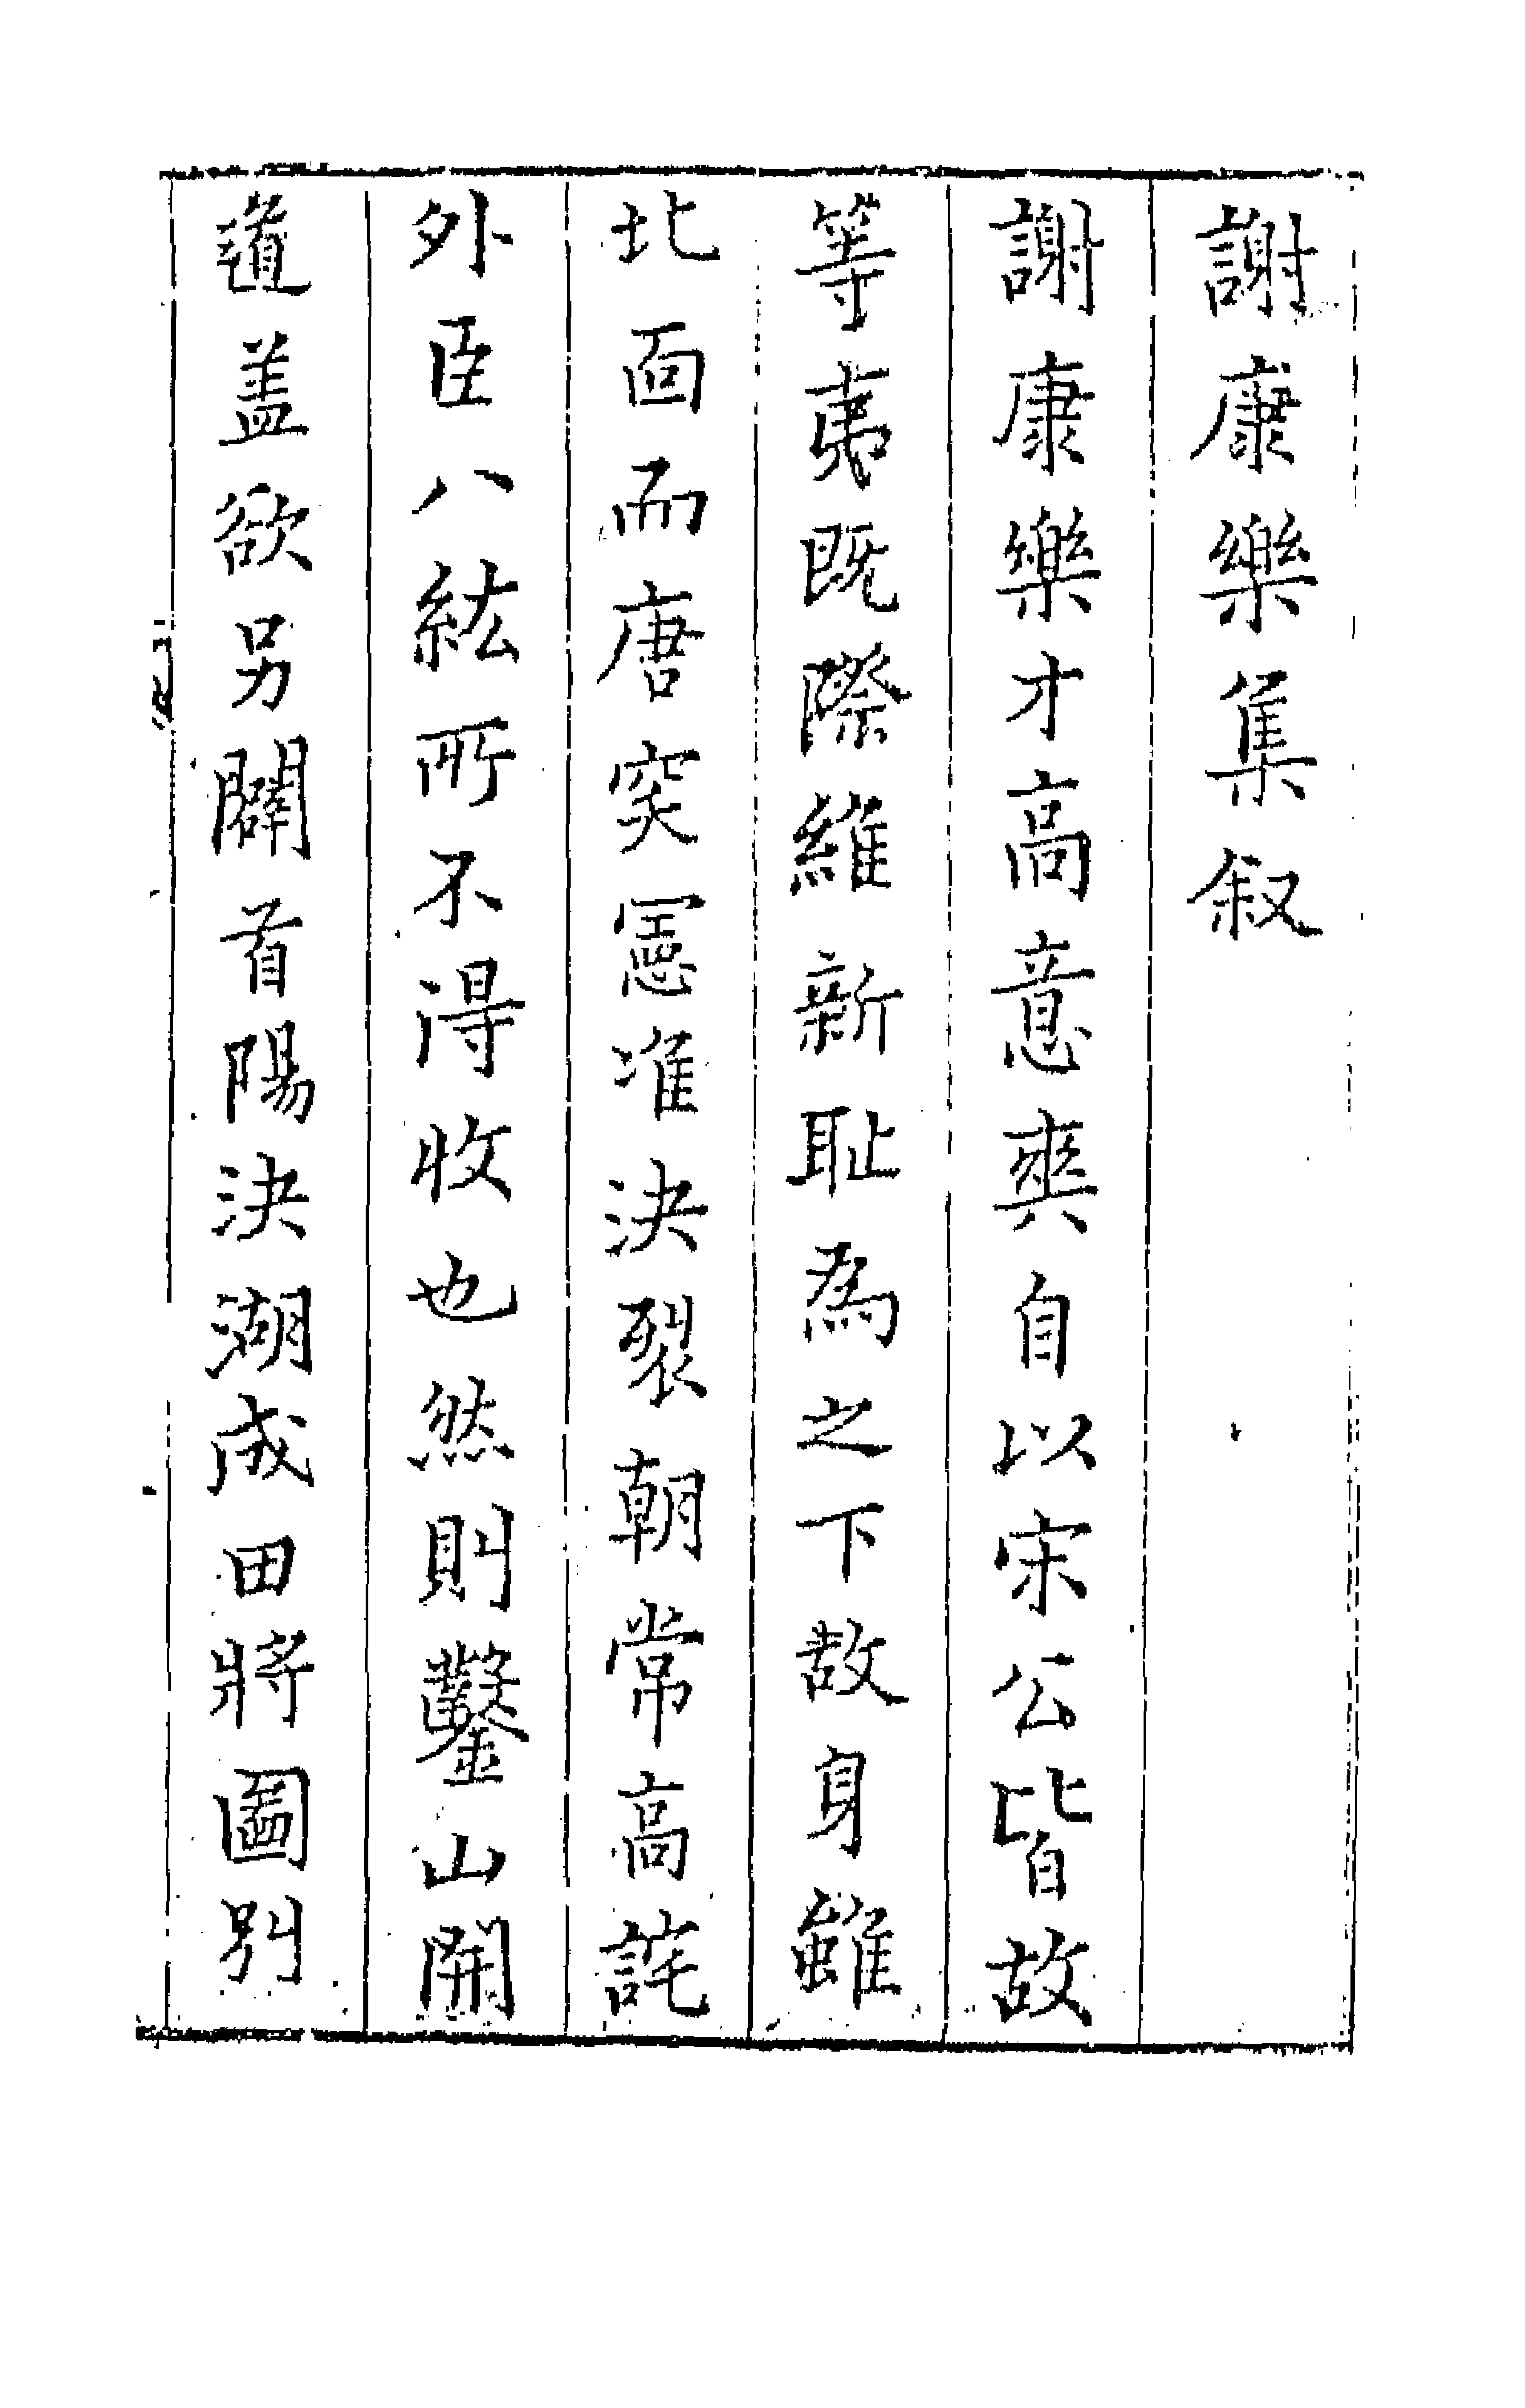 謝康樂集叙
謝康樂才高意爽自以宋公皆故
等夷既際維新耻爲之下故身雖
北面而唐突憲准決裂朝常高詫
外臣八紘所不得收也然則鑿山開
道盖欲另闢首陽決湖成田將圖别